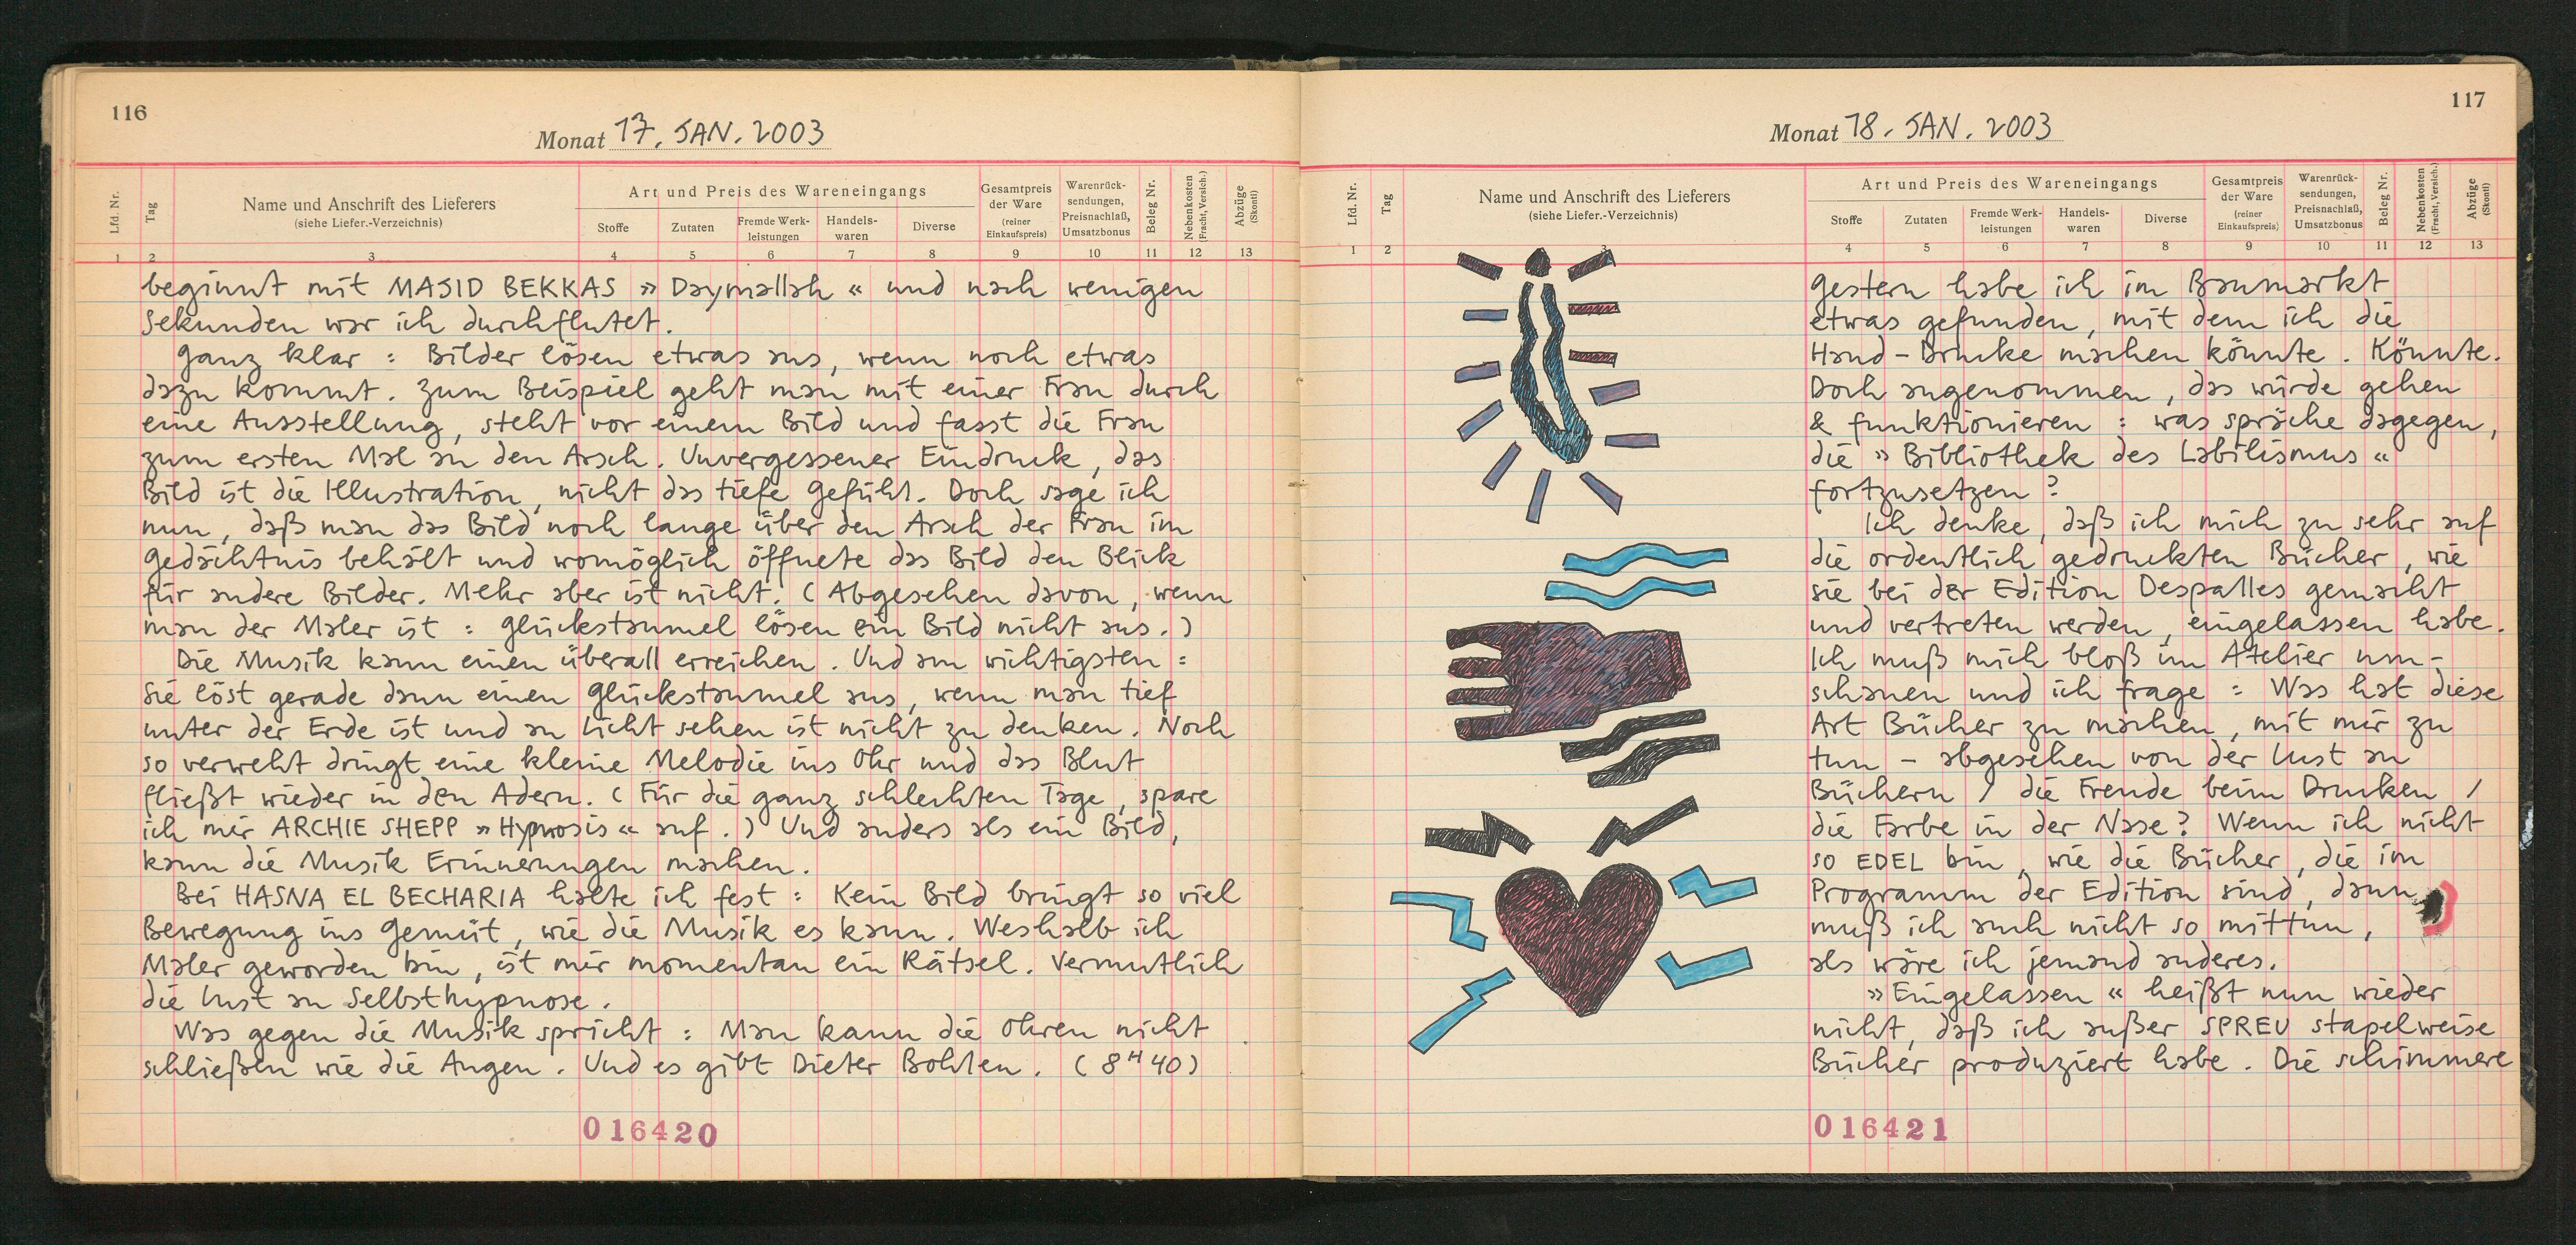 116
Monat 17. JAN. 2003
Lfd. Nr.
Tag
Name und Anschrift des Lieferers
(siehe Liefer.-Verzeichnis)
Art und Preis des Wareneingangs
Stoffe
Zutaten
Fremde Werk-
leistungen
Handels-
waren
Diverse
Gesamtpreis
der Ware
(reiner
Einkaufspreis)
Warenrück-
sendungen,
Preisnachlaß,
Umsatzbonus
Beleg Nr.
Nebenkosten
(Fracht, Versich.)
Abzüge
(Skonti)
1 2 3 4 5 6 7 8 9 10 11 12 13
beginnt mit MAJID BEKKAS » Daymallah « und nach wenigen
Sekunden war ich durchflutet.
Ganz klar : Bilder lösen etwas aus, wenn noch etwas
dazu kommt. Zum Beispiel geht man mit einer Frau durch
eine Ausstellung, steht vor einem Bild und fasst die Frau
zum ersten Mal an den Arsch. Unvergessener Eindruck, das
Bild ist die Illustration, nicht das tiefe Gefühl. Doch sage ich
nun, daß man das Bild noch lange über den Arsch der Frau im
Gedächtnis behält und womöglich öffnete das Bild den Blick
für andere Bilder. Mehr aber ist nicht. (Abgesehen davon, wenn
man der Maler ist : Glückstaumel lösen ein Bild nicht aus.)
Die Musik kann einen überall erreichen. Und am wichtigsten :
Sie löst gerade dann einen Glückstaumel aus, wenn man tief
unter der Erde ist und an Licht sehen ist nicht zu denken. Noch
so verweht dringt eine kleine Melodie ins Ohr und das Blut
fließt wieder in den Adern. (Für die ganz schlechten Tage, spare
ich mir ARCHIE SHEPP » Hypnosis « auf.) Und anders als ein Bild,
kann die Musik Erinnerungen machen.
Bei HASNA EL BECHARIA halte ich fest : Kein Bild bringt so viel
Bewegung ins Gemüt, wie die Musik es kann. Weshalb ich
Maler geworden bin, ist mir momentan ein Rätsel. Vermutlich
die Lust an Selbsthypnose.
Was gegen die Musik spricht : Man kann die Ohren nicht
schließen wie die Augen. Und es gibt Dieter Bohlen. (8H40)
016420
117
Monat 18. JAN. 2003
Lfd. Nr.
Tag
Name und Anschrift des Lieferers
(siehe Liefer.-Verzeichnis)
Art und Preis des Wareneingangs
Stoffe
Zutaten
Fremde Werk-
leistungen
Handels-
waren
Diverse
Gesamtpreis
der Ware
(reiner
Einkaufspreis)
Warenrück-
sendungen,
Preisnachlaß,
Umsatzbonus
Beleg Nr.
Nebenkosten
(Fracht, Versich.)
Abzüge
(Skonti)
1 2 3 4 5 6 7 8 9 10 11 12 13
Gestern habe ich im Baumarkt
etwas gefunden, mit dem ich die
Hand-Drucke machen könnte. Könnte.
Doch angenommen, das würde gehen
& funktionieren : was spräche dagegen,
die » Bibliothek des Labilismus «
fortzusetzen ?
Ich denke, daß ich mich zu sehr auf
die ordentlich gedruckten Bücher, wie
sie bei der Edition Despalles gemacht
und vertreten werden, eingelassen habe.
Ich muß mich bloß im Atelier um-
schauen und ich frage : Was hat diese
Art Bücher zu machen, mit mir zu
tun – abgesehen von der Lust an
Büchern / die Freude beim Drucken /
die Farbe in der Nase? Wenn ich nicht
so EDEL bin, wie die Bücher, die im
Programm der Edition sind, dann
muß ich auch nicht so mittun,
als wäre ich jemand anderes.
» Eingelassen « heißt nun wieder
nicht, daß ich außer SPREU stapelweise
Bücher produziert habe. Die schimmere
016421